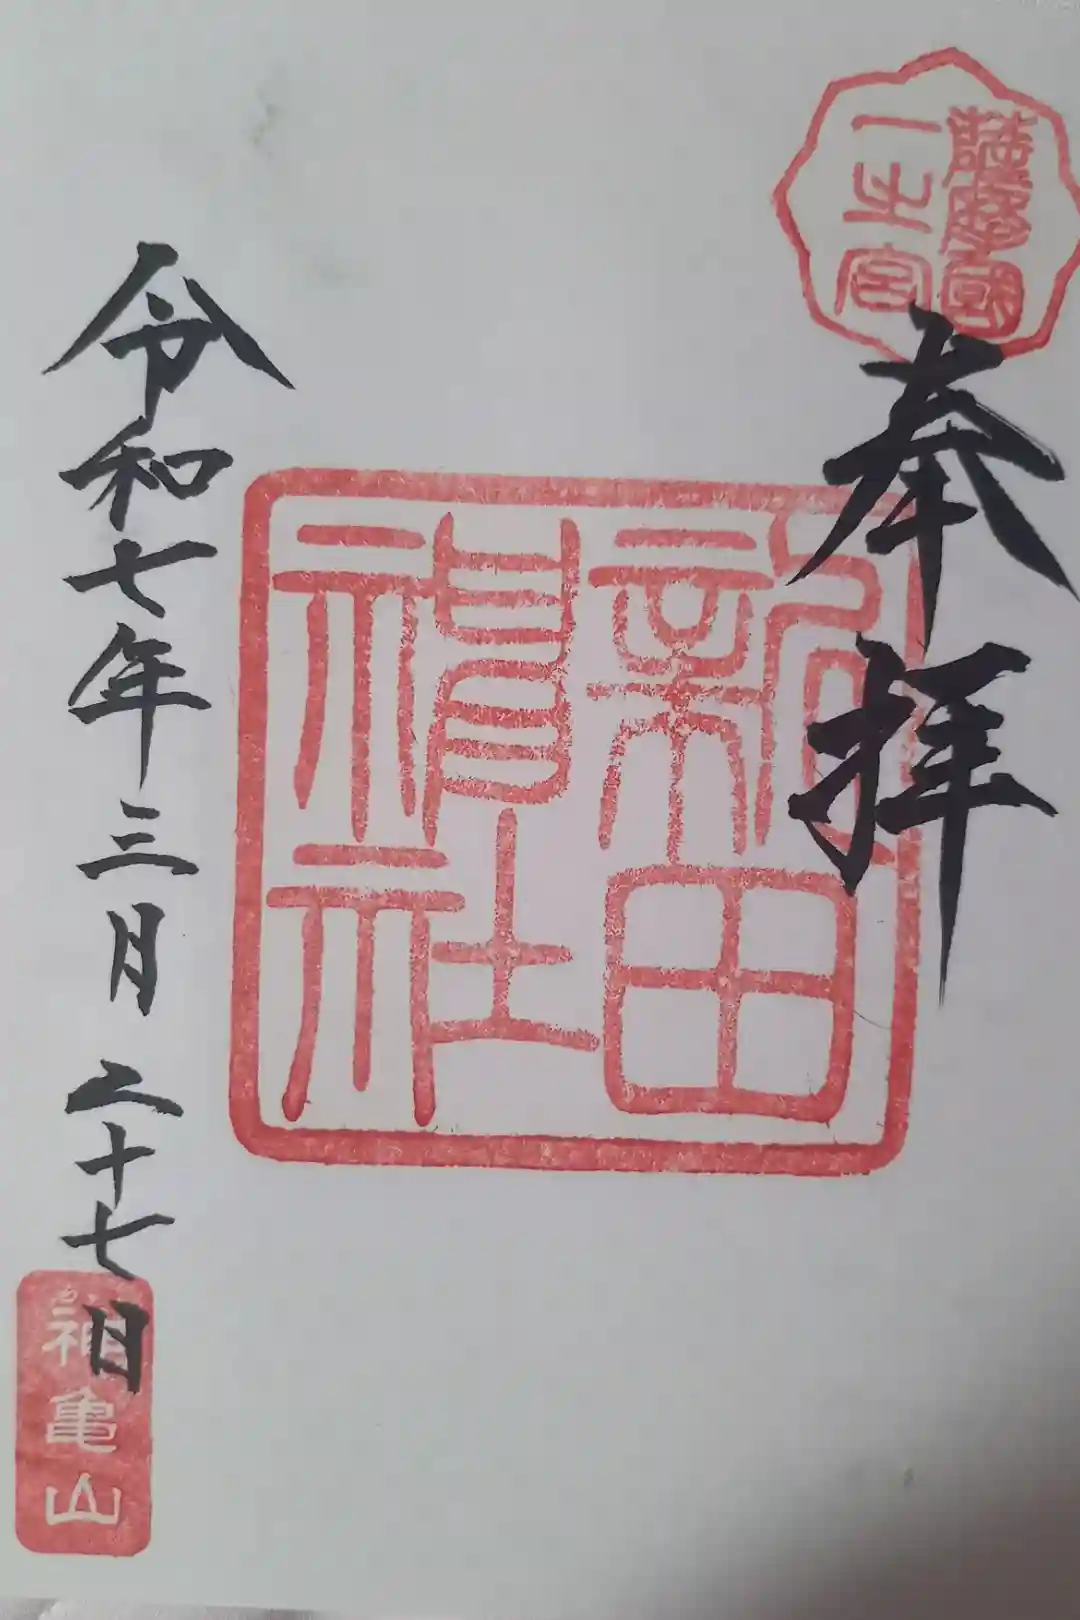 薩摩國
一之宮
奉拝
新田
神社
令和七年三月二十七日
神亀山